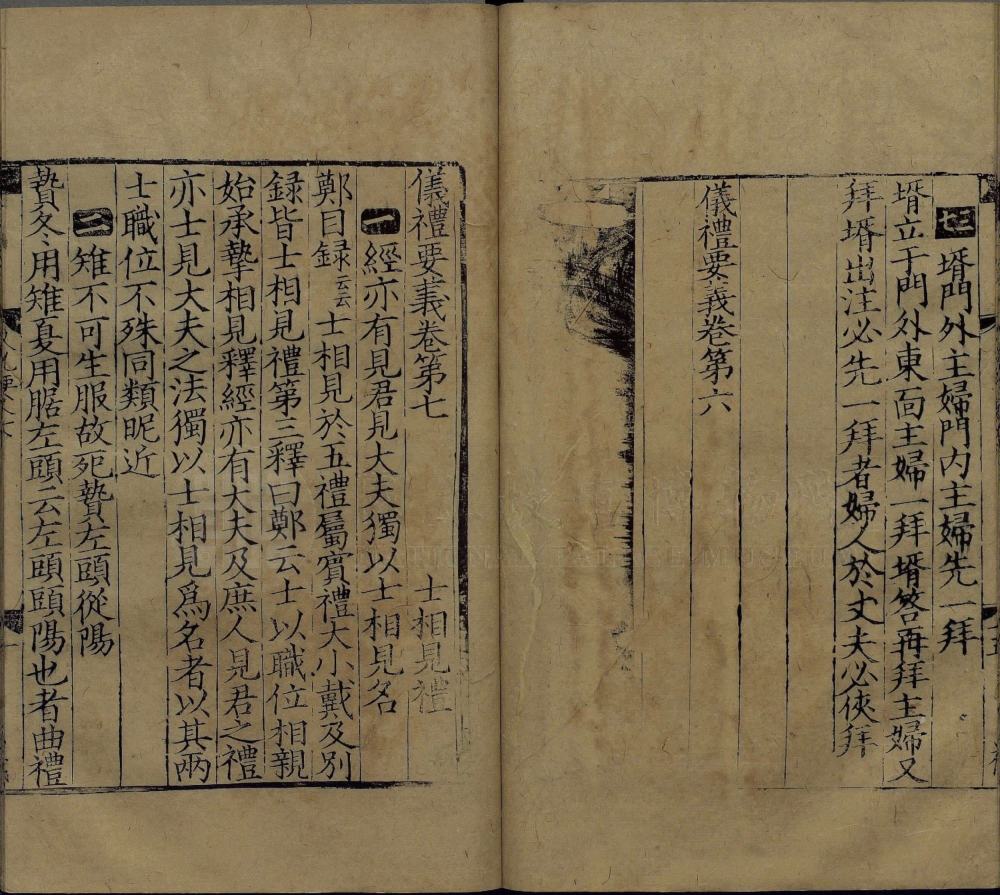 三七 壻門外主婦門内主婦先一拜
壻立于門外東面主婦一拜壻答再拜主婦又
拜壻出注必先一拜者婦人於丈夫必俠拜
儀禮要義卷第六
儀禮要義卷第七 士相見禮
一 經亦有見君見大夫獨以士相見名
鄭目録云云士相見於五禮屬賓禮大小戴及別
録皆士相見禮第三釋曰鄭云士以職位相親
始承摯相見釋經亦有大夫及庶人見君之禮
亦士見大夫之法獨以士相見爲名者以其兩
士職位不殊同類昵近
二 雉不可生服故死贄左頭從陽
贄冬用雉夏用腒左頭云左頭頭陽也者曲禮